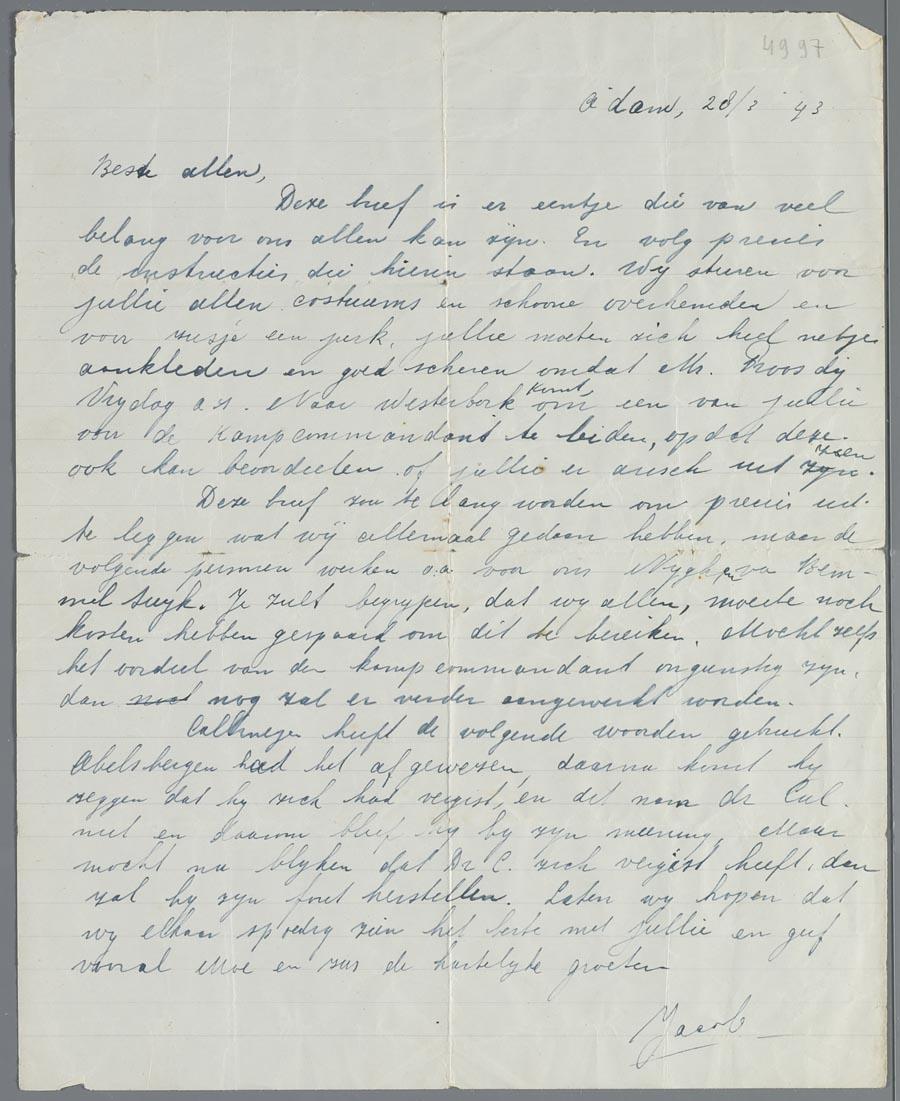 4997
A'dam, 28/3 43
Beste allen,
Deze brief is er eentje die van veel
belang voor ons allen kan zijn. En volg precies
de instructies die hierin staan. Wij sturen voor
jullie allen costuums en schoone overhemden en
voor zusje een jurk, jullie moeten zich heel netjes
aankleden en goed scheren omdat Mr. Proosdij
Vrijdag a.s. Naar Westerbork komt om een van jullie
voor de Kampcommandant te leiden, opdat deze
ook kan beoordeelen of jullie er arisch uit zien.
Deze brief zou te lang worden om precies uit
te leggen wat wij allemaal gedaan hebben, maar de
volgende personen werken o.a voor ons Nijgh, en va Bem-
mel Suyk. Je zult begrijpen, dat wij allen, moeite noch
kosten hebben gespaard om dit te bereiken. Mocht zelfs
het oordeel van den kampcommandant ongunstig zijn,
dan nog zal er verder aangewerkt worden.
Callmeyer heeft de volgende woorden gebruikt.
Abelsbergen had het afgewezen, daarna komt hij
zeggen dat hij zich had vergist, en dit nam dr Cal.
niet en daarom bleef hij bij zijn meening, Maar
mocht nu blijken dat Dr C. zich vergist heeft, dan
zal hij zijn fout herstellen. Laten wij hopen dat
wij elkaar spoedig zien het beste met jullie en geef
vooral Moe en zus de hartelijke groeten
Jacob